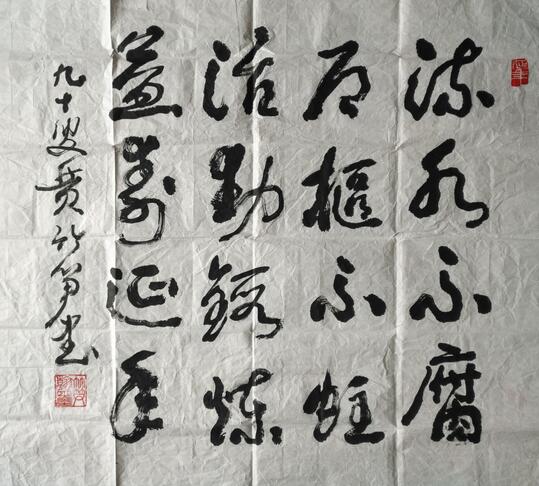 流水不腐
户枢不蛀
活动锻炼
益寿延年
九十叟费新筠书